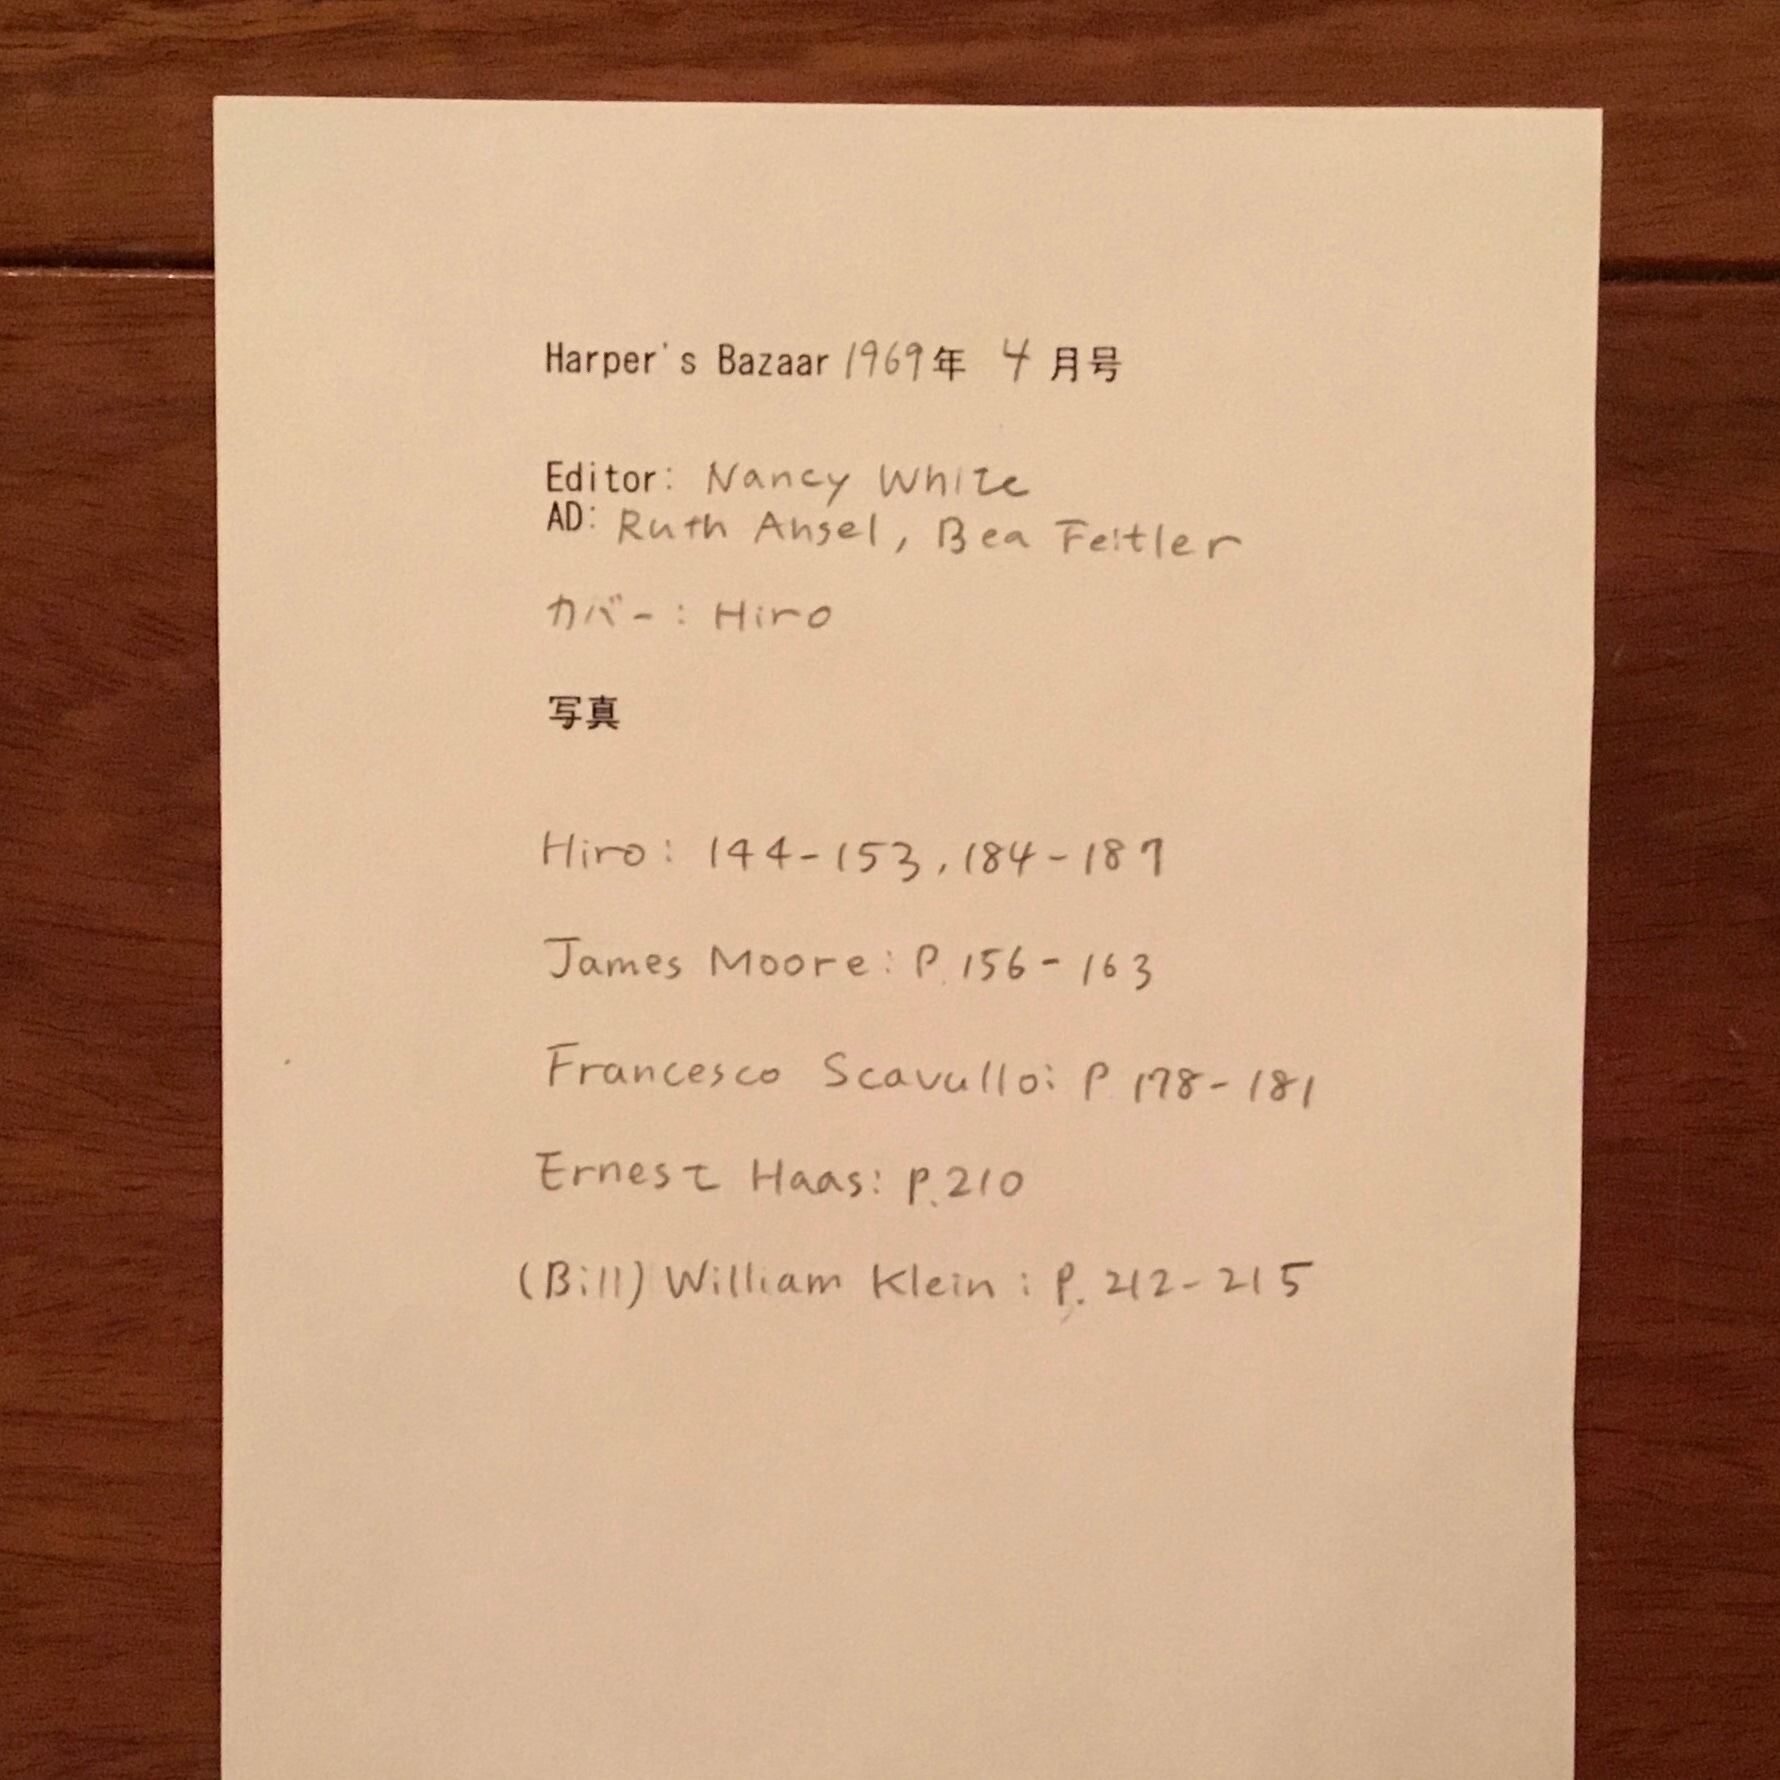 Harper's Bazaar 1969年 4月号
Editor: Nancy White
AD: Ruth Ansel, Bea Feitler
カバー: Hiro
写真
Hiro: 144-153, 184-187
James Moore: P.156-163
Francesco Scavullo: P.178-181
Ernest Haas: P.210
(Bill) William Klein: P.212-215